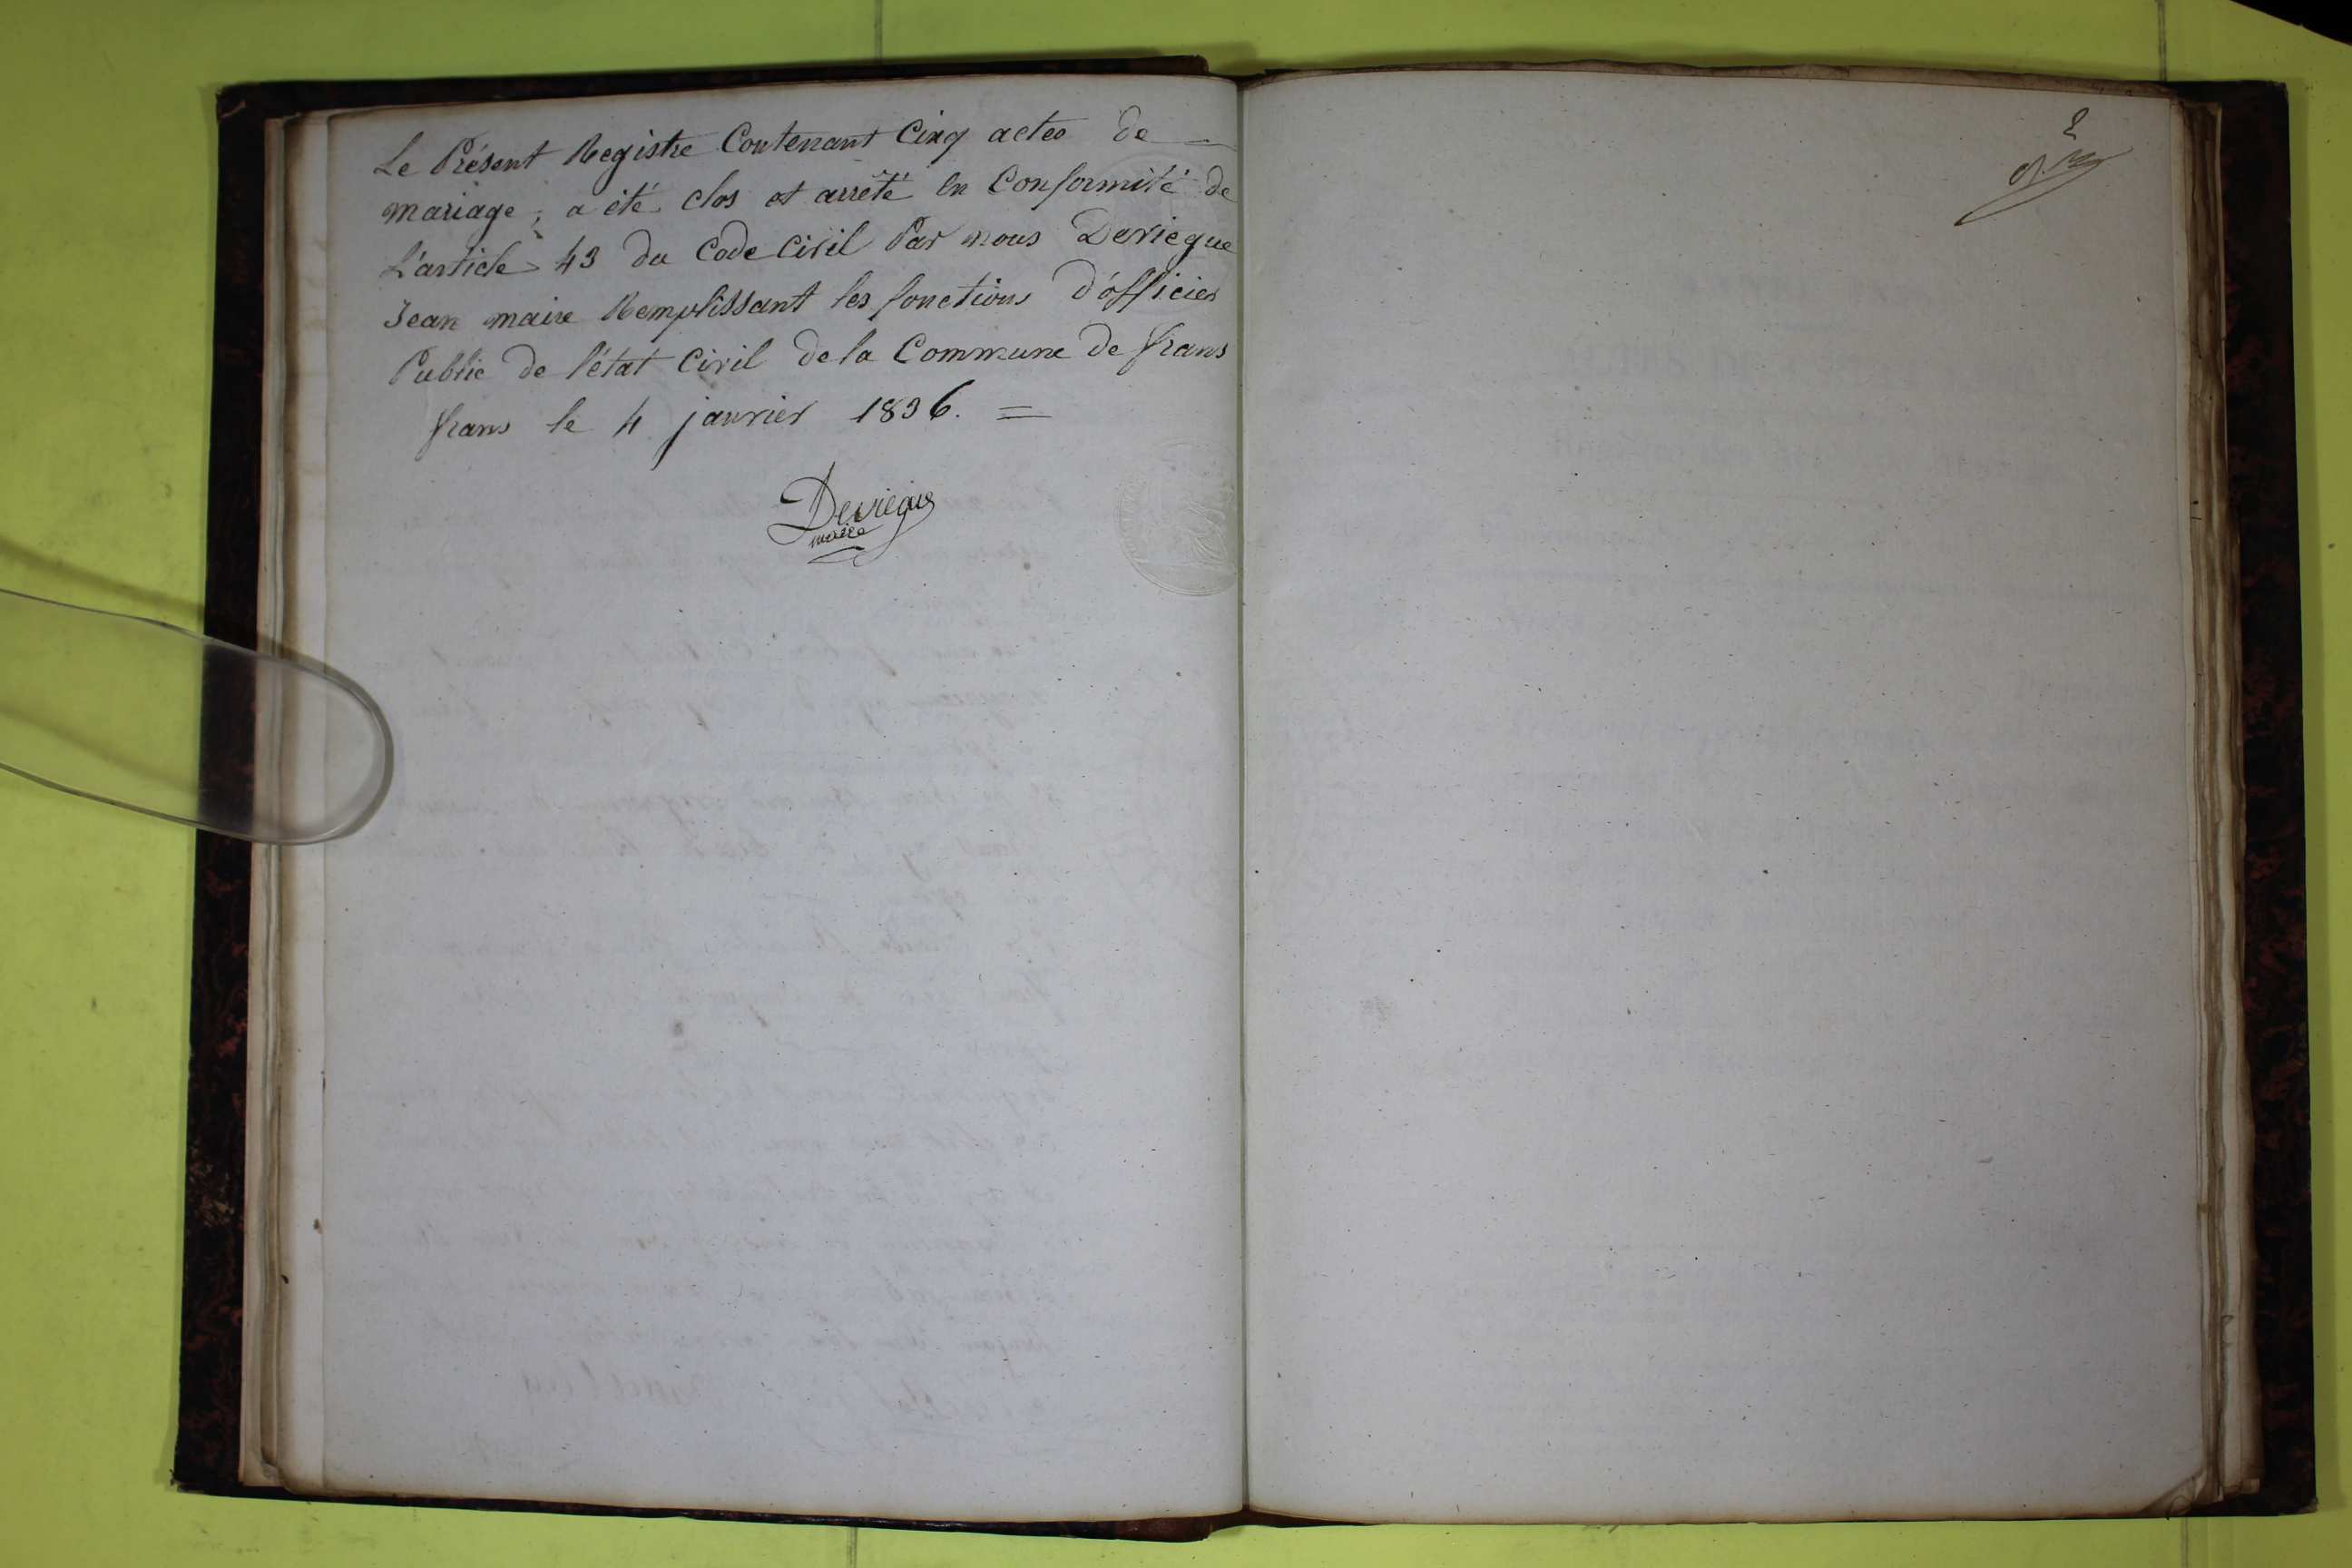 Le Présent Registre Contenant Cinq actes de
mariage, a été clos et arrêté en Conformité de
L'article 43 du Code Civil Par nous Devicque
Jean maire Remplissant les fonctions d'officier
Public de l'état Civil de la Commune de frans
frans le 4 janvier 1836. =
Devicque
maire
2